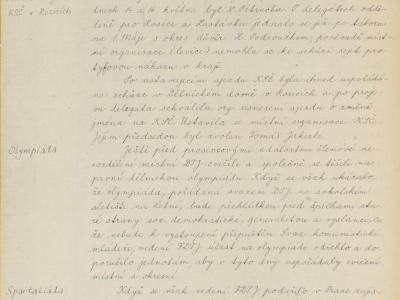 KSČ v Rosicích
dnech 14. a 16. května byl V. Pěšrobor. O delegátech oddě-
leně pro Rosice a Zastávku jednalo se již po táboru
na 1. máje s okres. důvěr. H. Podrovákem, poněvadž míst-
ní organisace (levice) nemohla se ke schůzi sejít pro
tyfovou nákazu v kraji.
Po ustavujícím sjezdu KSČ byla ihned uspořádá-
na schůze v Dělnickém domě v Rosicích a po proje-
vu delegáta schválila org. usnesení sjezdu o změně
jména na KSČ. Ustavila se místní organisace KSČ.
Jejím předsedou byl zvolen Tomáš Jekerle.
Olympiáta
Ještě před prosincovými událostmi členové ne-
rozdělené místní DTJ cvičili a společně se těšili na
první dělnickou olympiádu. Když se však ukázalo,
že olympiáda, pořádaná svazem DTJ na sokolském
sletišti na Letné, bude přehlídkou před špičkami sta-
ré strany soc. demokratické, generalitou a vyslanci, a
že nebude k vystoupení připuštěn Svaz komunistické
mládeže, vedení FDTJ účast na olympiádě odřeklo a do-
poručilo jednotám aby v tyto dny uspořádaly cvičení
místní a okresní.
Spartakiáda
Když se však vedení FDTJ podařilo v Praze zajis-